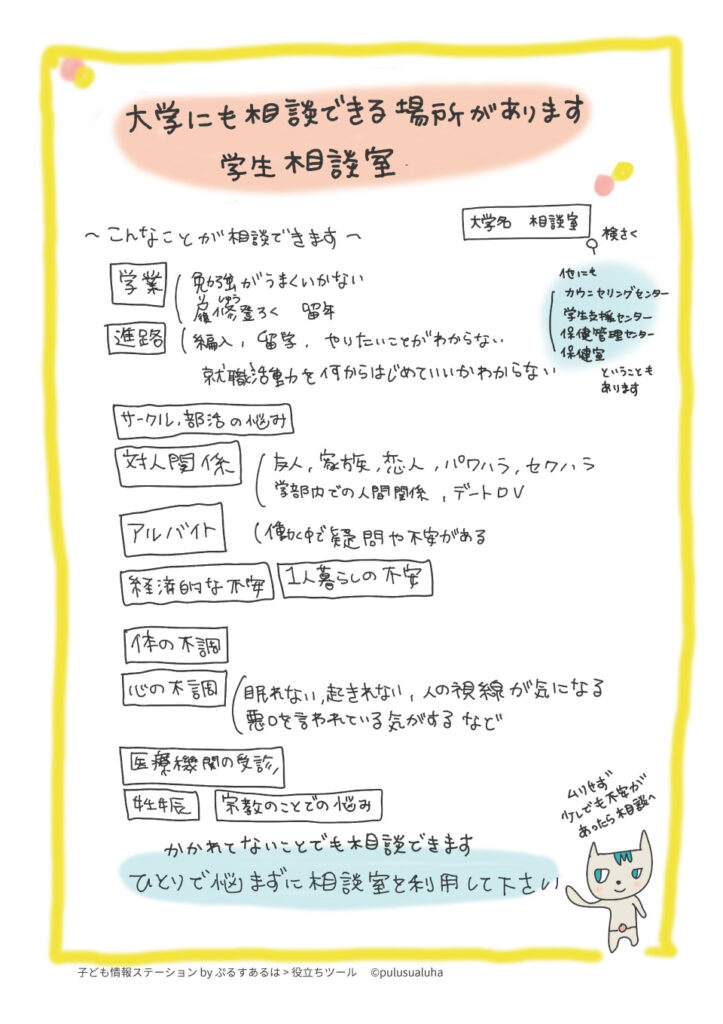 大学にも相談できる場所があります
学生相談室
〜こんなことが相談できます〜
大学名 相談室
検さく
他にも
カウンセリングセンター
学生支援センター
保健管理センター
保健室
ということも
あります
学業
勉強がうまくいかない
履修登ろく 留年
りしゅう
進路
編入、留学、やりたいことがわからない
就職活動を何からはじめていいかわからない
サークル、部活の悩み
対人関係
友人、家族、恋人、パワハラ、セクハラ
学部内での人間関係、デートDV
アルバイト
働く中で疑問や不安がある
経済的な不安
1人暮らしの不安
体の不調
心の不調
眠れない、起きれない、人の視線が気になる
悪口を言われている気がする など
医療機関の受診
妊娠
宗教のことでの悩み
かかれてないことでも相談できます
ひとりで悩まずに相談室を利用して下さい
ムリせず
少しでも不安が
あったら相談へ
子ども情報ステーション by ぷるすあるは > 役立ちツール ©pulusualuha